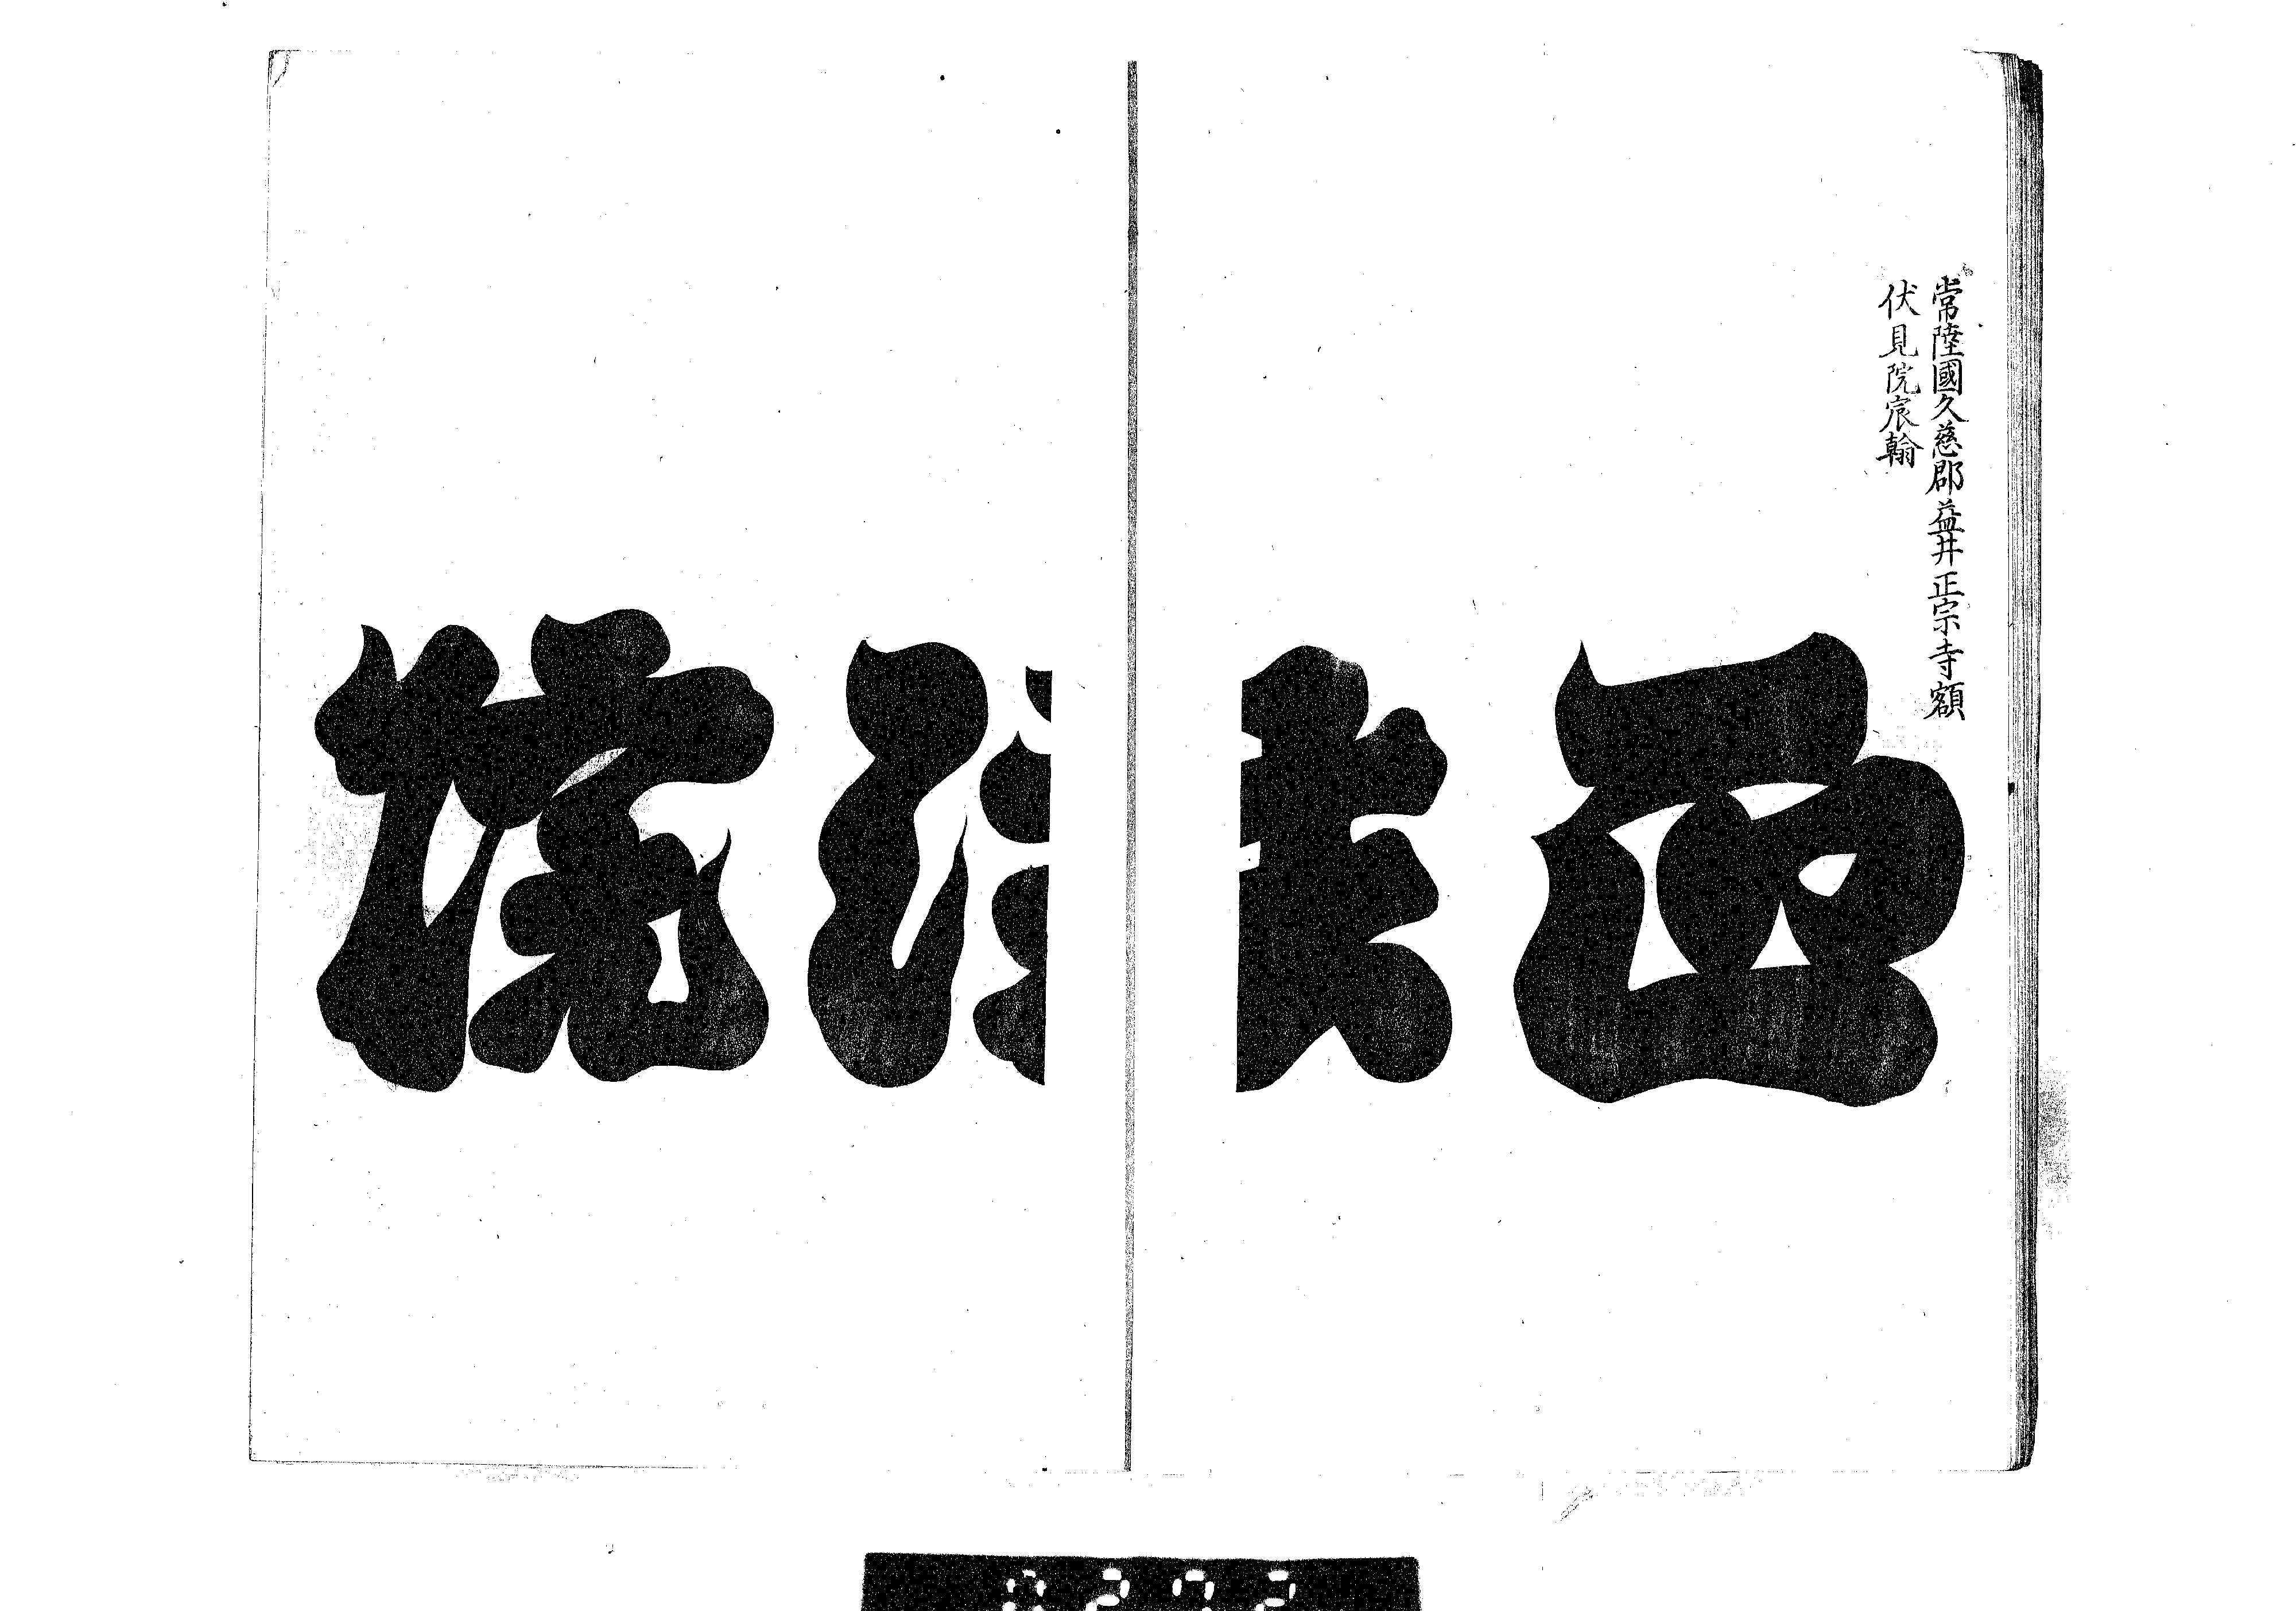 常陸國久慈郡益井正宗寺額
伏見院宸翰
正法院